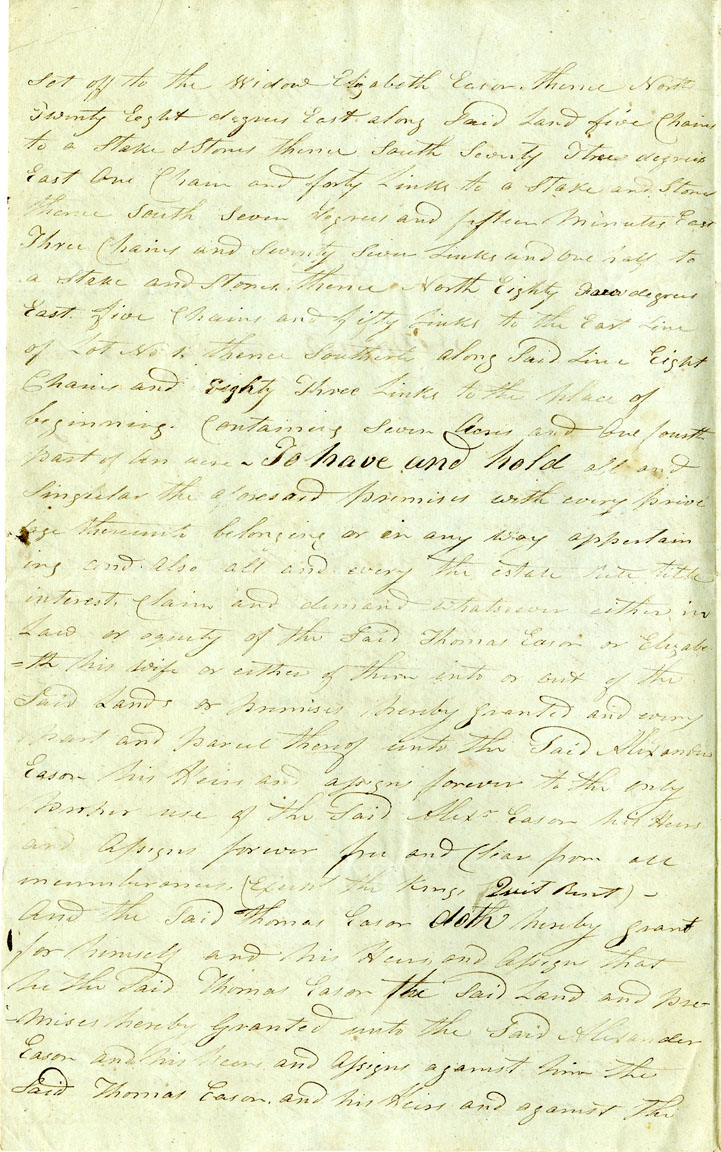 Set off to the Widow Elizabeth Eason thence North
Twenty Eight degrees East along Said Land five Chains
to a Stake & Stones thence South Seventy Three degrees
East One Chain and forty Links to a Stake and Stones
thence South Seven degrees and fifteen Minutes East
Three Chains and Seventy Seven Links and One half to
a Stake and Stones thence North Eighty degrees
East five Chains and fifty Links to the East Line
of Lot No 1. thence Southerly along Said Line Eight
Chains and Eighty Three Links to the place of
beginning. Containing Seven Acres and One fourth
part of an acre - To have and hold all and
Singular the aforesaid premises with every privi
lege thereunto belonging or in any way appertain
ing and also all and every the estate title
interest, Claim and demand whatsoever either in
Law or equity of the Said Thomas Eason or Elizabe
=th his wife or either of them into or out of the
Said Lands or premises hereby granted and every
part and parcel thereof unto the Said Alexander
Eason his Heirs and assigns forever to the only
proper use of the Said Alexr Eason his Heirs
and Assigns forever free and Clear from all
incumberances (Except the Kings Quit Rent) -
And the Said Thomas Eason doth hereby grant
for himself and his Heirs and Assigns that
he the Said Thomas Eason the Said Land and pre-
-mises hereby Granted unto the Said Alexander
Eason and his heirs and Assigns against him the
Said Thomas Eason. and his Heirs and against the